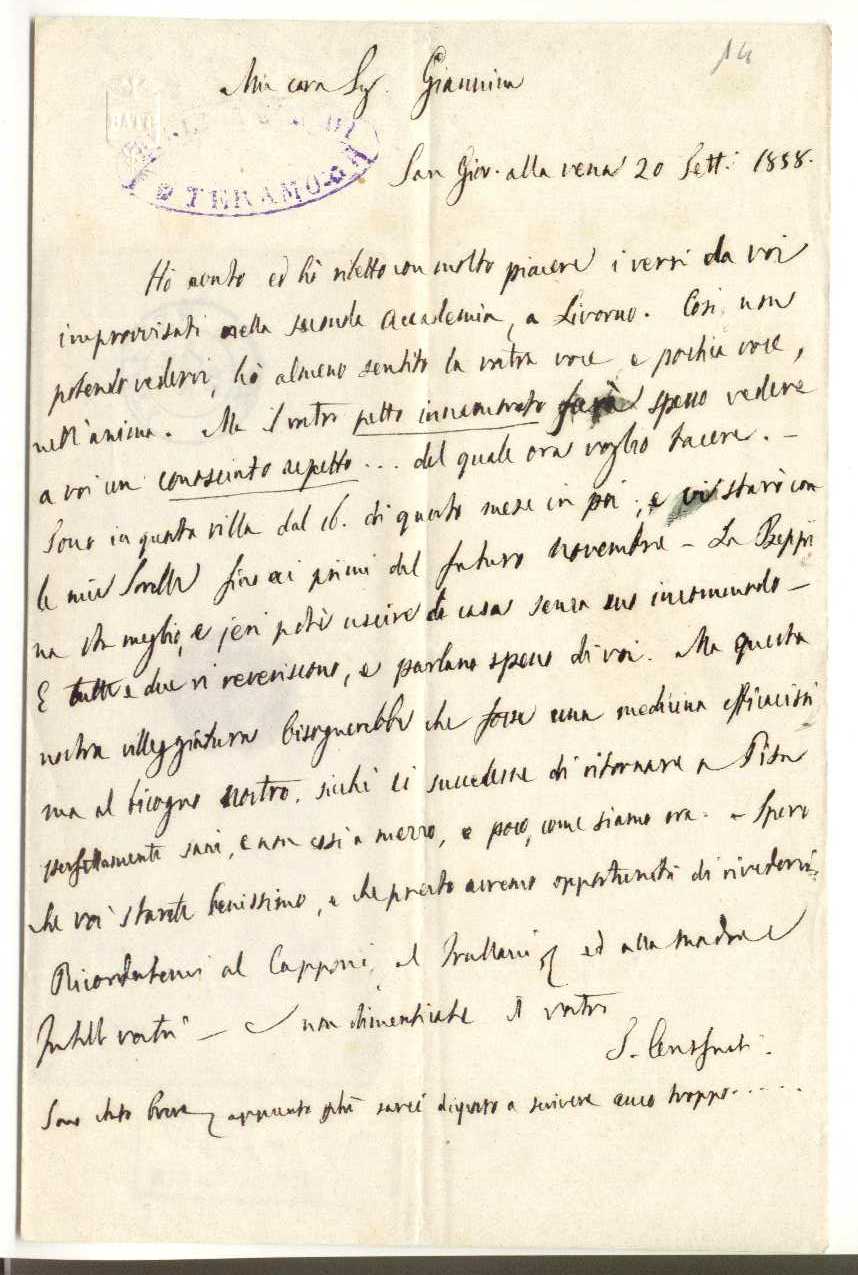 14
Mia cara Sig. Giannina
BATH
TERAMO
San Giov. alla vena 20 Sett. 1858.
Hò avuto ed hò riletto con molto piacere i versi da voi
improvvisati nella seconda Accademia, a Livorno. Così, non
potendo vedervi, hò almeno sentito la vostra voce, e poetica voce,
nell'anima. Ma il vostro petto innamorato farà spesso vedere
a voi un conosciuto aspetto... del quale ora voglio tacere. –
Sono in questa villa dal 16. di questo mese in poi; e vi starò con
le mie Sorelle fino ai primi del futuro novembre – La Beppi
na sta meglio, e jeri potè uscire di casa senza suo incommodo –
E tutte e due vi reveriscono, e parlano spesso di voi. Ma questa
nostra villeggiatura bisognerebbe che fosse una medicina efficacissi
ma al bisogno nostro, sicchè ci succedesse di ritornare a Pisa
perfettamente sani, e non così a mezzo, e poco, come siamo ora. – Spero
che voi starete benissimo, e che presto avremo opportunità di rivedervi.
Ricordatemi al Capponi, al ed alla madre e
fratelli vostri – e non dimenticate il vostro
S. Centofanti.
Sono stato breve, appunto perchè sarei disposto a scrivere anco troppo.....